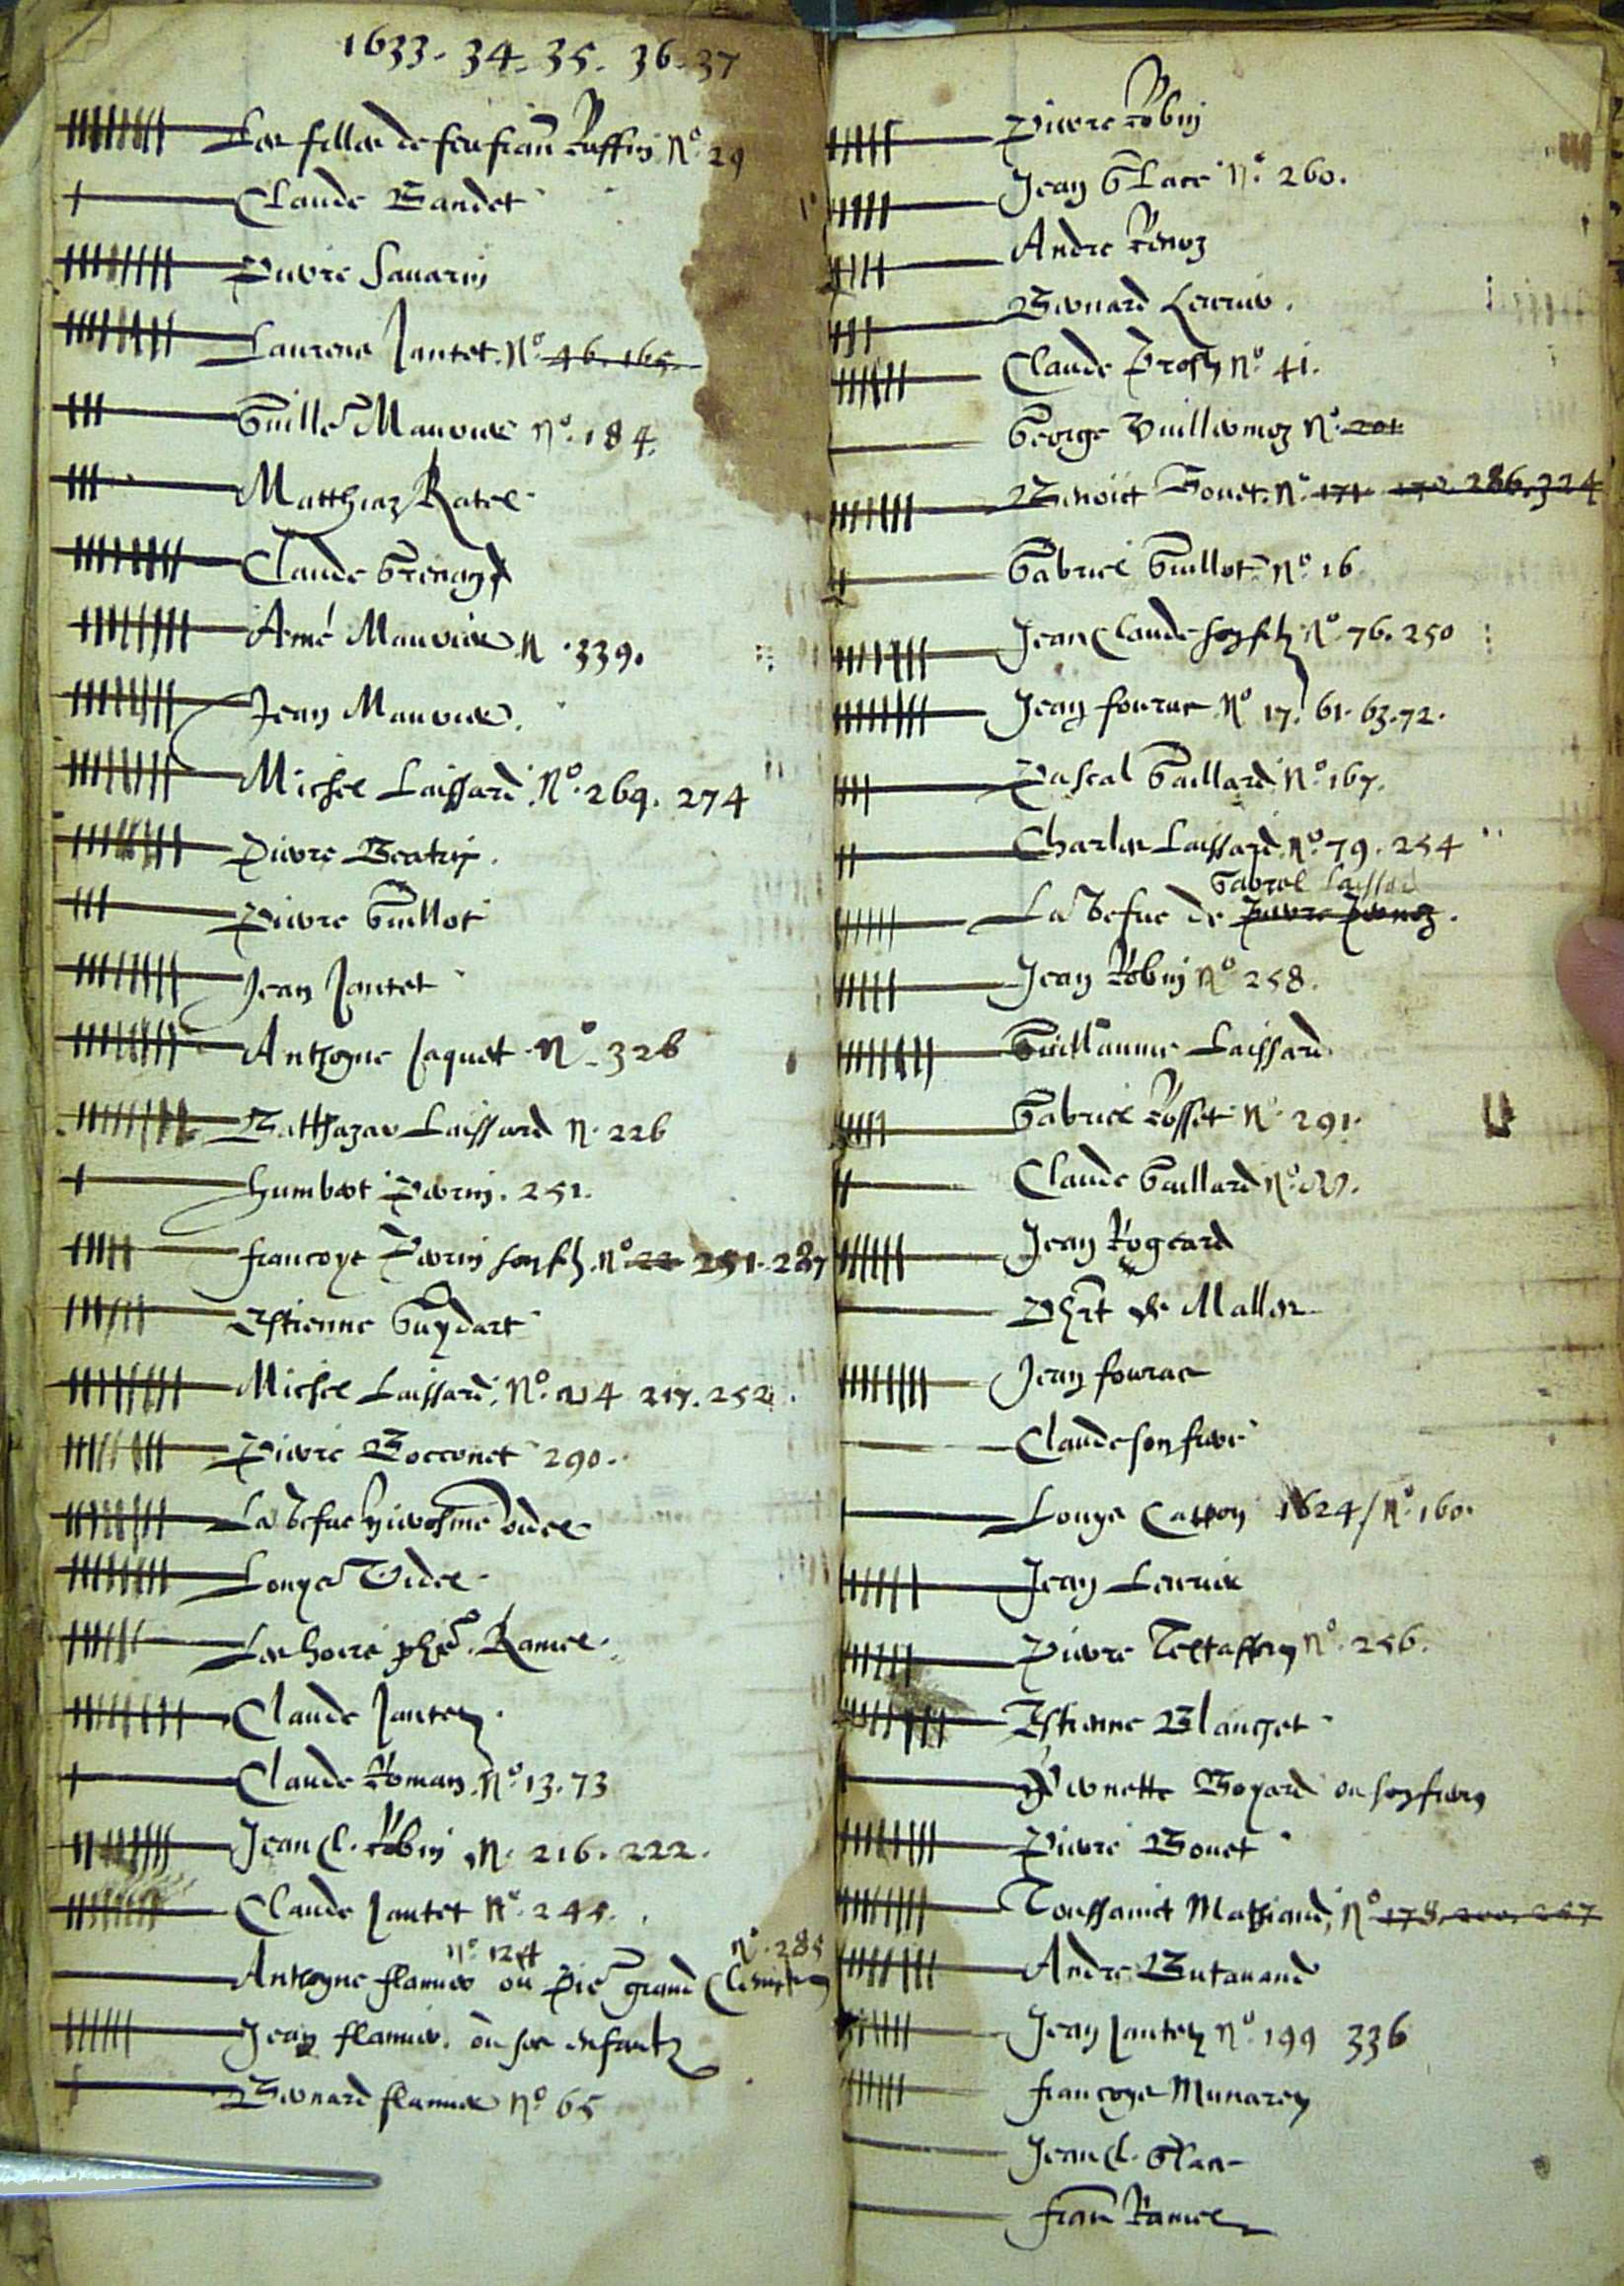 1633. 34. 35. 36. 37
Les filles de feu fran Ruffin N° 29
Claude Bandet
Pierre Savarin
Laurens Jantet. N° 46. 165.
Guille Mauvier N°. 184.
Matthiaz Ratel
Claude
Amé Mauvier N. 339.
Jean Mauvier.
Michel Laissard. N°. 269. 274
Pierre Beatrix.
Pierre Guillot
Jean Jantet
Anthoyne Jaquet N°. 326
Balthazar Laissard N. 226
Humbert Perrin. 251.
francoys Perrin son filz. N° 22 251. 287
Estienne Guydart
Michel Laissard. N°. 214 217. 252.
Pierre Borronet 290.
La Vefue Hierosme Videl
Louys Videl
Les hoirs phe. Ramel.
Claude Jantet.
Claude Roman. N° 13. 73
Jean Cl. Robin N. 216. 222.
Claude Jantet N°. 245.
N° 124 N°. 285
Anthoyne flamier ou Pie grand Clement
Jean flamier. ou ses enfantz
Bernard flamier N° 65
Pierre Robin
Jean Glace N°. 260.
Andre
Bernard Lerrier.
Claude Prost N°. 41.
George Vuillermoz N°. 201
Benoict Bouet. N°. 171. 172. 286. 324
Gabriel Guillot N°. 16
Jean Claude son filz N°. 76. 250
Jean fourac N° 17. 61. 63. 72.
Pascal Gaillard N°. 167.
Charles Laissard. N°. 79. 254
Gabriel Laissard
La Vefue de Pierre Pernoz.
Jean Robin N° 258.
Guillaume Laissard
Gabriel Rosset N°. 291.
Claude Gaillard N°.
Jean Rogeard
Phrt de Malles
Jean fourac
Claude son frere
Louys Carron 1624 / N°. 160.
Jean Lerrier
Pierre N°. 256.
Estienne Blanchet
Pernette Boyard ou son frere
Pierre Bouet
Toussainct Mathiaud, N° 178. 200. 257
Andre Butavand
Jean Jantet N°. 199 336
francoys Munarey
Jean Cl. Glace
fran Ramel